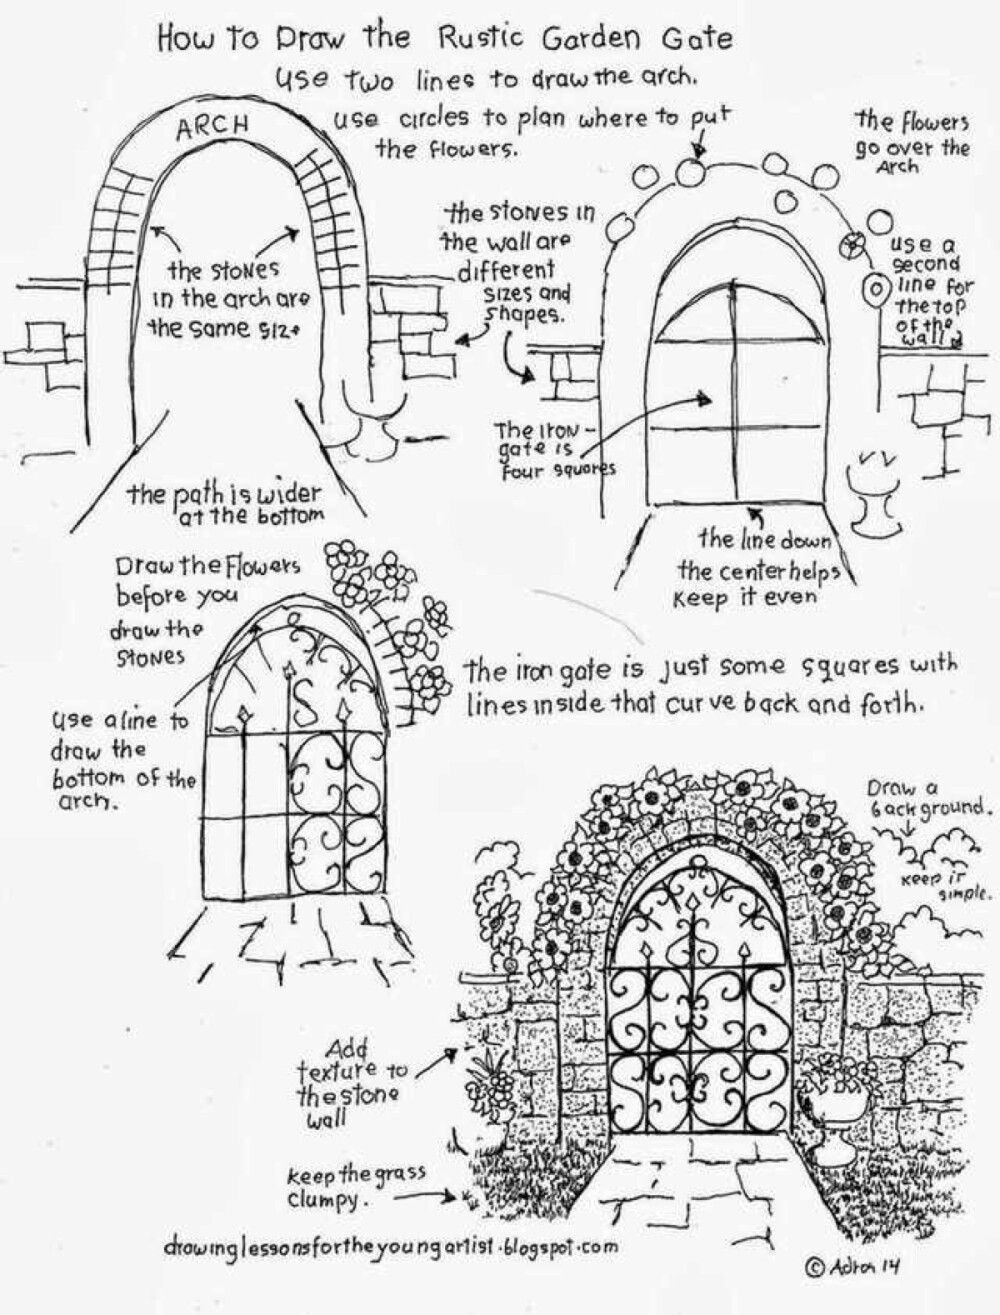 How to Draw the Rustic Garden Gate
use two lines to draw the arch.
ARCH
use circles to plan where to put
the flowers.
the flowers
go over the
Arch
the stones in
the wall are
different
sizes and
shapes.
the stones
in the arch are
the same size
use a
second
line for
the top
of the
wall
The iron
gate is
four squares
the path is wider
at the bottom
the line down
the center helps
keep it even
Draw the Flowers
before you
draw the
stones
use a line to
draw the
bottom of the
arch.
the iron gate is just some squares with
lines inside that curve back and forth.
Draw a
background.
keep it
simple.
Add
texture to
the stone
wall
keep the grass
clumpy.
drawinglessonsfortheyoungartist.blogspot.com
© Adron 14